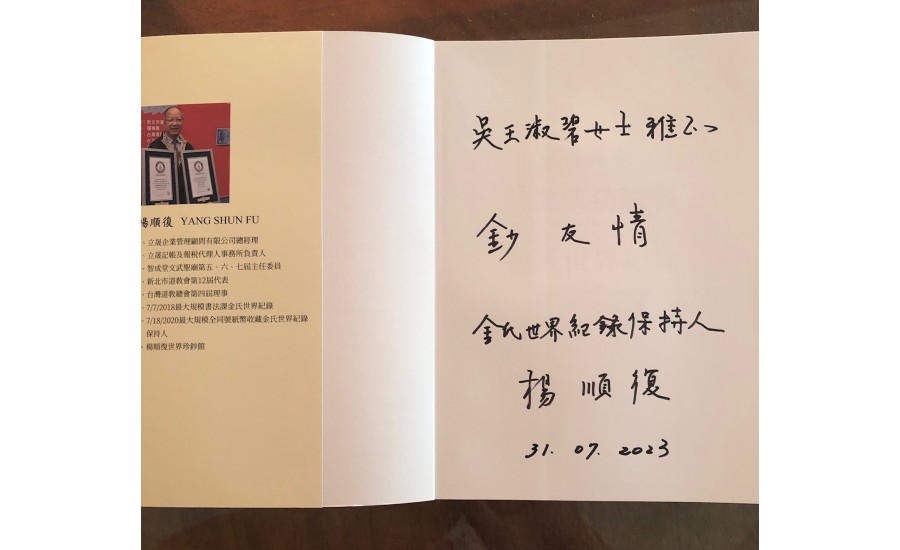 楊順復 YANG SHUN FU
、立晟企業管理顧問有限公司總經理
、立晟記帳及報稅代理人事務所負責人
、智成堂文武聖廟第五、六、七屆主任委員
、新北市道教會第12屆代表
、台灣道教總會第四屆理事
、7/7/2018最大規模書法課金氏世界紀錄
、7/18/2020最大規模全同號紙幣收藏金氏世界紀錄
保持人
、楊順復世界珍鈔館
吳王淑碧女士 雅正
鈔友情
金氏世界紀錄保持人
楊順復
31. 07. 2023